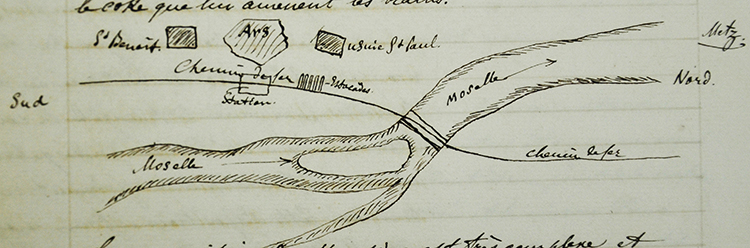 le coke que lui amènent les trains.
St Benoit.
Ars
usine St Paul.
Metz
Chemin de fer
Estacades
Station.
Moselle
Nord.
Sud
Moselle
Chemin de fer
est très complexe et